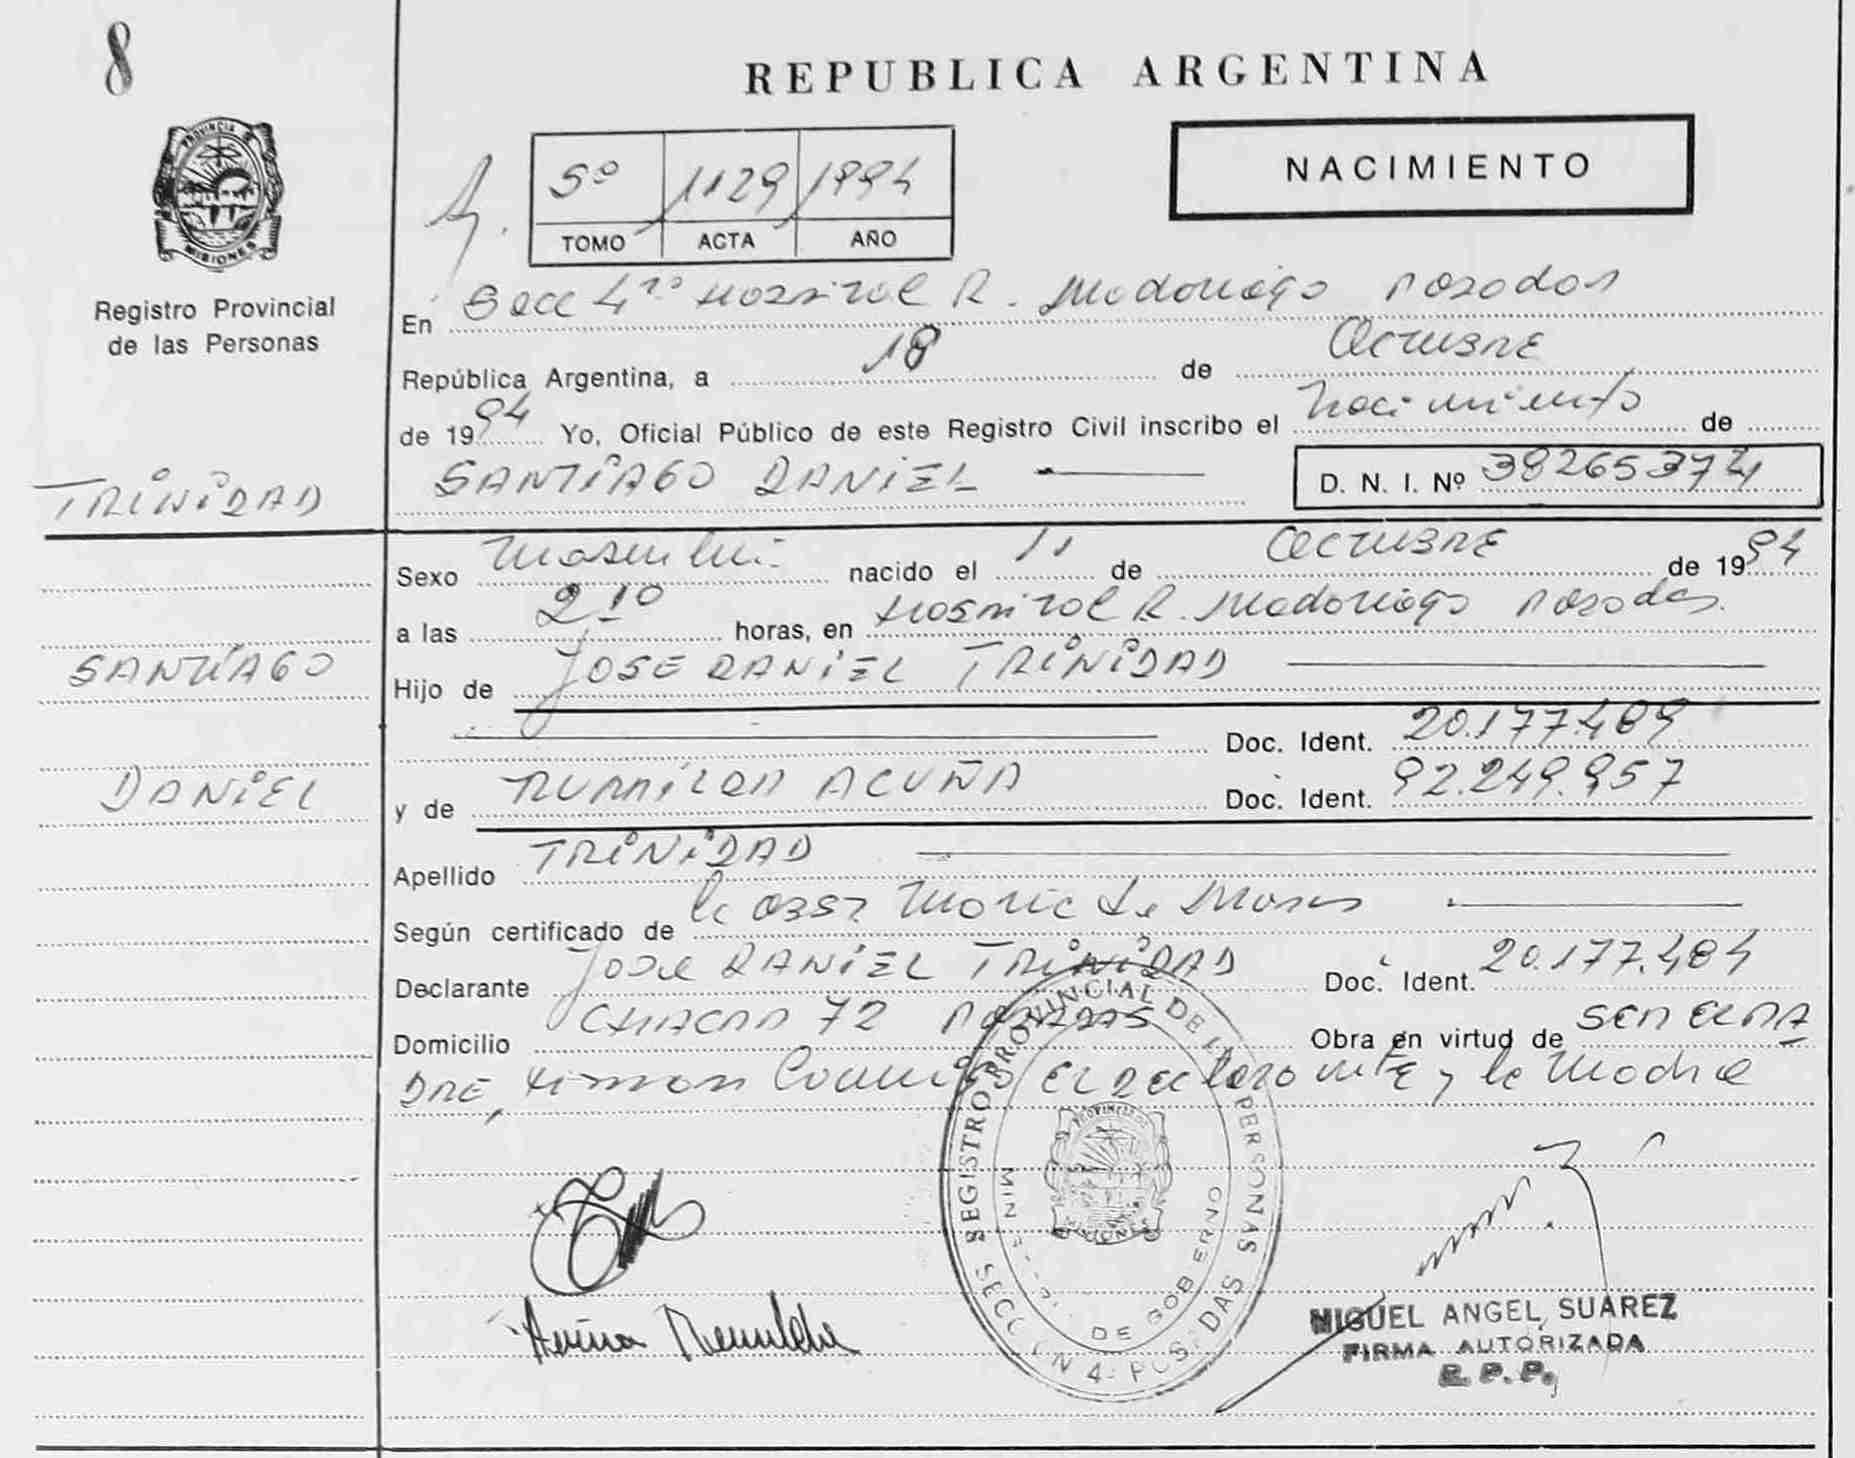 8
REPUBLICA ARGENTINA
PROVINCIA DE MISIONES
5º 1129 1994
TOMO ACTA AÑO
NACIMIENTO
Registro Provincial
de las Personas
En Secc 4ta Hospital R. Madariaga Posadas
República Argentina, a 18 de Octubre
de 1994 Yo, Oficial Público de este Registro Civil inscribo el Nacimiento de
TRINIDAD
SANTIAGO DANIEL D. N. I. Nº 38265374
Sexo Masculino nacido el 11 de Octubre de 1994
a las 2 10 horas, en Hospital R. Madariaga Posadas.
SANTIAGO
Hijo de JOSE DANIEL TRINIDAD
Doc. Ident. 20.177.489
DANIEL
y de ACUÑA Doc. Ident. 92.249.957
Apellido TRINIDAD
Según certificado de la obst Maria de
Declarante JOSE DANIEL TRINIDAD Doc. Ident. 20.177.484
Domicilio CHACRA 72 POSADAS Obra en virtud de SER EL PA
DRE, Firman Conmigo el declarante y la Madre
REGISTRO PROVINCIAL DE LAS PERSONAS
SECCION 4- POSADAS
DE GOBIERNO
MIGUEL ANGEL SUAREZ
FIRMA AUTORIZADA
R. P. P.